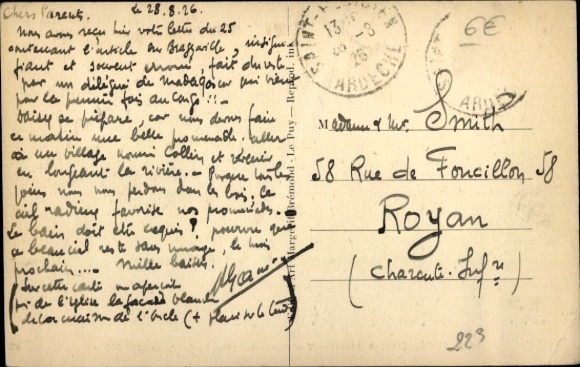 Chers Parents. le 28.8.26
Nous avons reçu hier votre lettre du 25
contenant l'article sur Brazzaville, insigni-
fiant et souvent erroné fait du reste
par un délégué de Madagascar qui vient
pour la première fois au Congo !! -
Daisy se prépare, car nous devons faire
ce matin une belle promenade. aller
à un village nommé Collin et revenir
en longeant la rivière. - Presque tous les
jours nous nous perdons dans les bois. Ce
ciel radieux favorise nos promenades.
Le bain doit être exquis ? pourvu que
ce beau ciel reste sans nuage le mois
prochain.... Mille baisers.
Sur cette carte on aperçoit
de l'église la façade blanche
de la maison de l'oncle (+ placé sur le
SAINT- ARDECHE
13
28 -8
26
ARDECHE
6€
Madame & Mr. Smith
58 Rue de Foncillon 58
Royan
(Charente-Infre)
229
Margerit-Brémond - Le Puy - Reprod. int.